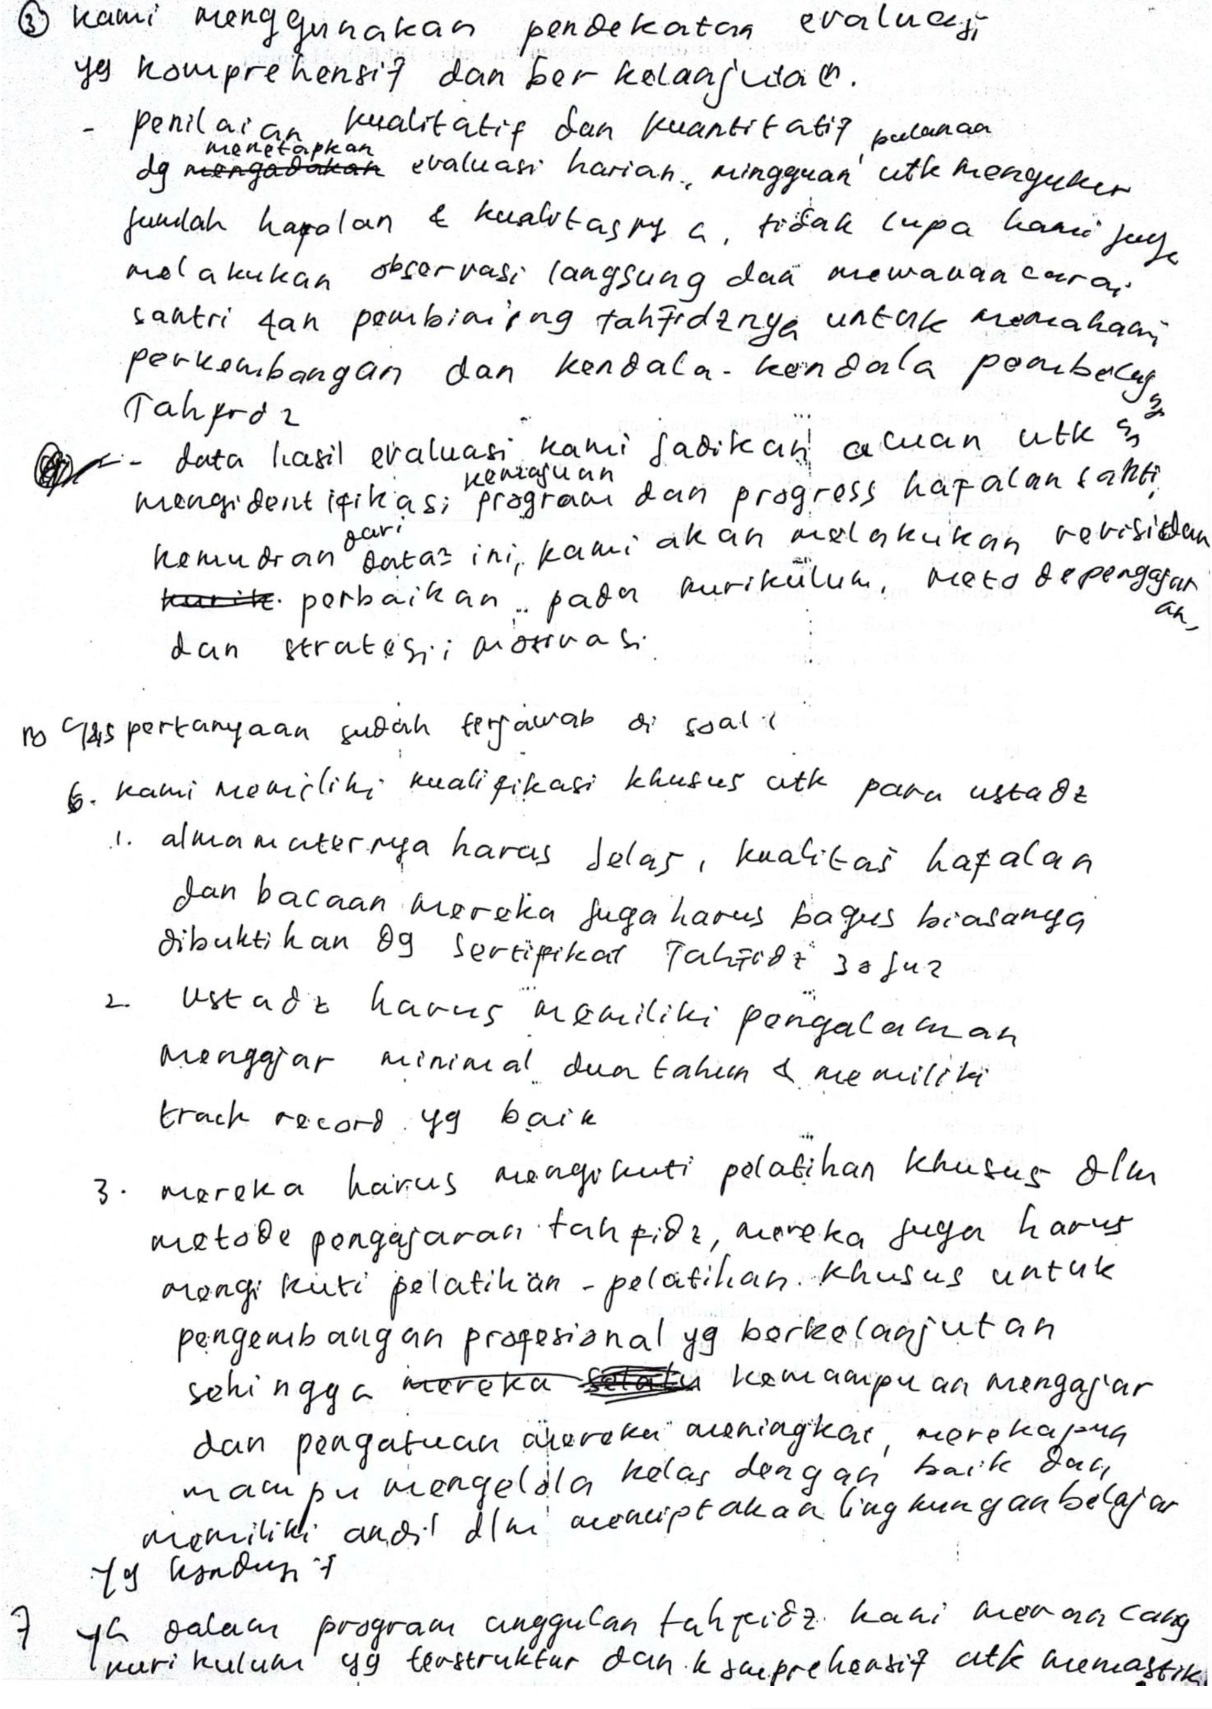 ③ kami menggunakan pendekatan evaluasi
yg komprehensif dan berkelanjutan.
- penilaian kualitatif dan kuantitatif bulanan
menetapkan
dg mengadakan evaluasi harian, mingguan utk mengukur
jumlah hafalan & kualitasnya, tidak lupa kami juga
melakukan observasi langsung dan mewawancarai
santri dan pembimbing tahfidznya untuk memahami
perkembangan dan kendala-kendala pembelajaran
Tahfidz
- data hasil evaluasi kami jadikan acuan utk
kemajuan
mengidentifikasi program dan progress hafalan santri
dari
kemudian data² ini, kami akan melakukan revisi dan
perbaikan pada kurikulum, metode pengajaran,
dan strategi motivasi.
pertanyaan sudah terjawab di soal 1
6. kami memiliki kualifikasi khusus utk para ustadz
1. almamaternya harus jelas, kualitas hafalan
dan bacaan mereka juga harus bagus biasanya
dibuktikan dg sertifikat Tahfidz 30 juz
2. ustadz harus memiliki pengalaman
mengajar minimal dua tahun & memiliki
track record yg baik
3. mereka harus mengikuti pelatihan khusus dlm
metode pengajaran tahfidz, mereka juga harus
mengikuti pelatihan-pelatihan khusus untuk
pengembangan profesional yg berkelanjutan
sehingga mereka selalu kemampuan mengajar
dan pengatuan mereka meningkat, mereka pun
mampu mengelola kelas dengan baik dan
memiliki andil dlm menciptakan lingkungan belajar
yg kondusif
7 ya dalam program unggulan tahfidz kami merancang
kurikulum yg terstruktur dan komprehensif utk memastik